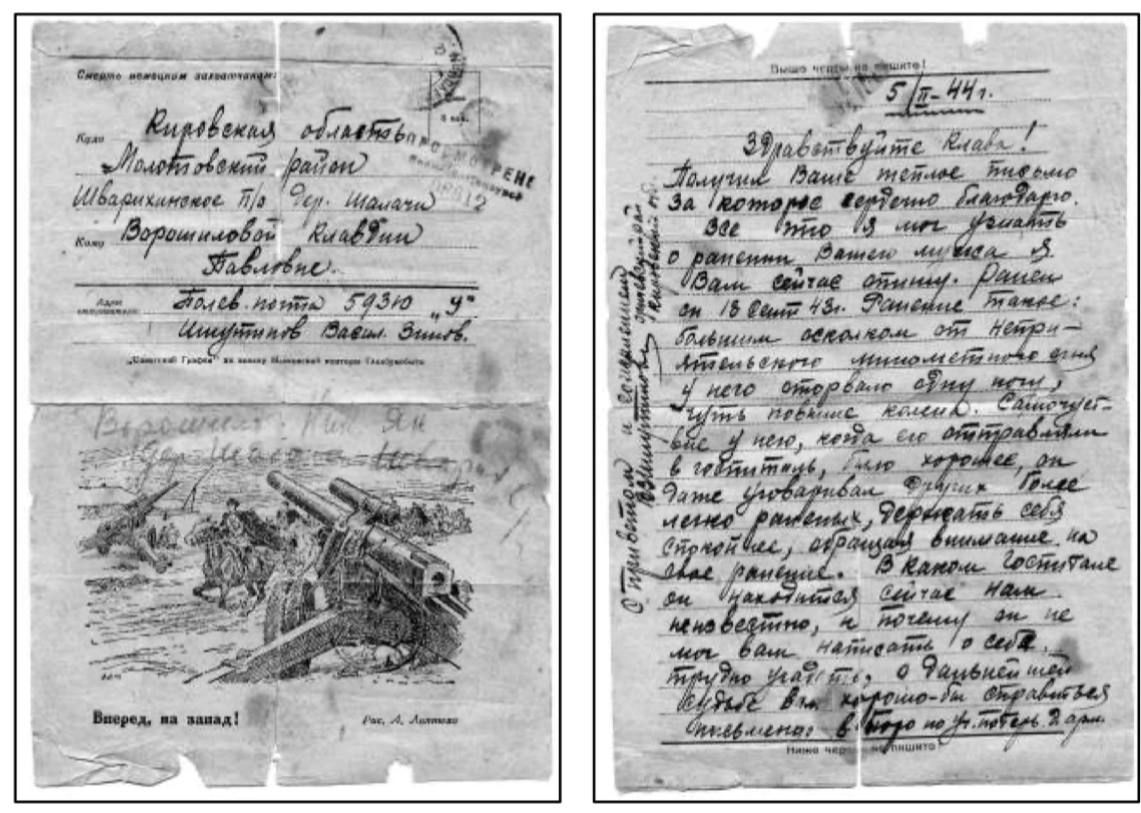 Смерть немецким захватчикам!
Куда Кировская область
Молотовский район
Шварихинское п/о дер. Шалачи
Кому Ворошиловой Клавдии
Павловне.
Адрес отправителя: Полев. почта 59310 „У"
Ишутинов Васил. Зинов.
ПРОСМОТРЕНО
Ворошил. Ник Ян
Вперед, на запад!
Рис. А.
Выше черты не пишите!
5/II-44 г.
Здравствуйте Клава!
Получил Ваше теплое письмо
за которое сердечно благодарю.
Все что я мог узнать
о ранении Вашего мужа я
Вам сейчас опишу. Ранен
он 18 сент 43 г. Ранение такое:
большим осколком от непри-
ятельского минометного огня
у него оторвало одну ногу,
чуть повыше колена. Самочувст-
вие у него, когда его отправляли
в госпиталь, было хорошее, он
даже уговаривал других более
легко раненых, держать себя
спокойнее, обращая внимание на
свое ранение. В каком госпитале
он находится сейчас нам
неизвестно, и почему он не
мог вам написать о себе
трудно угадать, о дальнейшей
судьбе его хорошо-бы справиться
письменно в бюро по уч. потерь 2 арм.
Ниже черты не пишите!
С приветом и